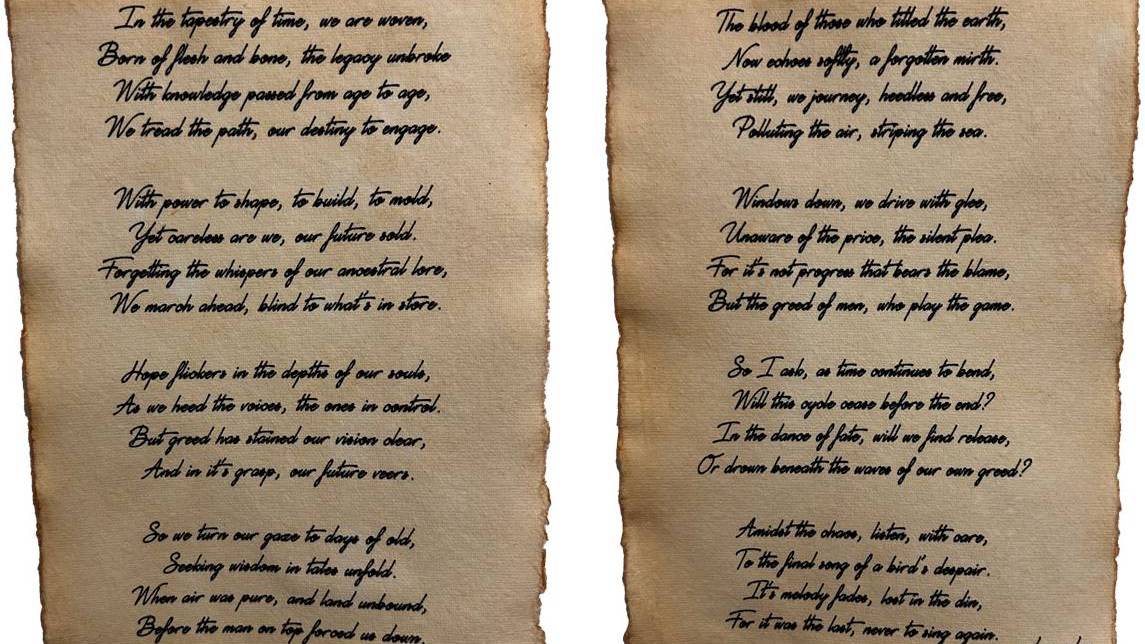 In the tapestry of time, we are woven,
Born of flesh and bone, the legacy unbroke
With knowledge passed from age to age,
We tread the path, our destiny to engage.
With power to shape, to build, to mold,
Yet careless are we, our future sold.
Forgetting the whispers of our ancestral lore,
We march ahead, blind to what's in store.
Hope flickers in the depths of our souls,
As we heed the voices, the ones in control.
But greed has stained our vision clear,
And in it's grasp, our future veers.
So we turn our gaze to days of old,
Seeking wisdom in tales unfold.
When air was pure, and land unbound,
Before the man on top forced us down.
The blood of those who titled the earth,
Now echoes softly, a forgotten mirth.
Yet still, we journey, heedless and free,
Polluting the air, striping the sea.
Windows down, we drive with glee,
Unaware of the price, the silent plea.
For it's not progress that bears the blame,
But the greed of men, who play the game.
So I ask, as time continues to bend,
Will this cycle cease before the end?
In the dance of fate, will we find release,
Or drown beneath the waves of our own greed?
Amidst the chaos, listen, with care,
To the final song of a bird's despair.
It's melody fades, lost in the din,
For it was the last, never to sing again.